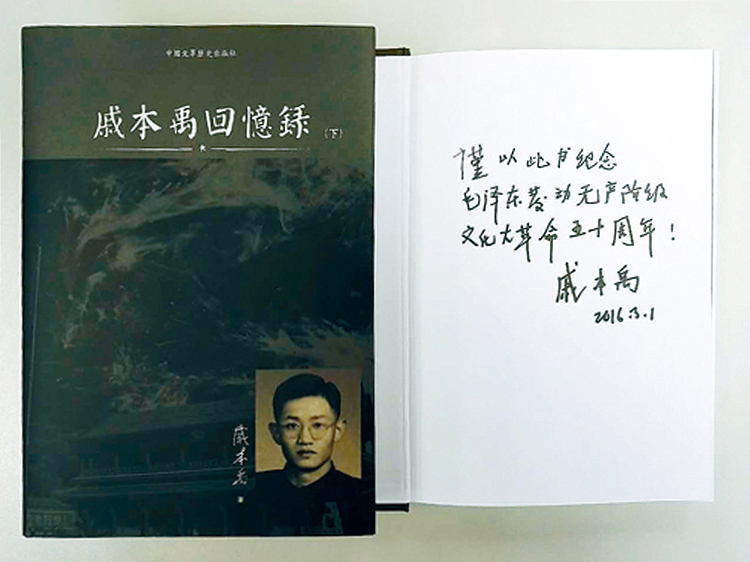 中國文革歷史出版社
戚本禹回憶録
（下）
戚本禹
著
谨以此书纪念
毛泽东发动无产阶级
文化大革命五十周年！
戚本禹
2016.3.1